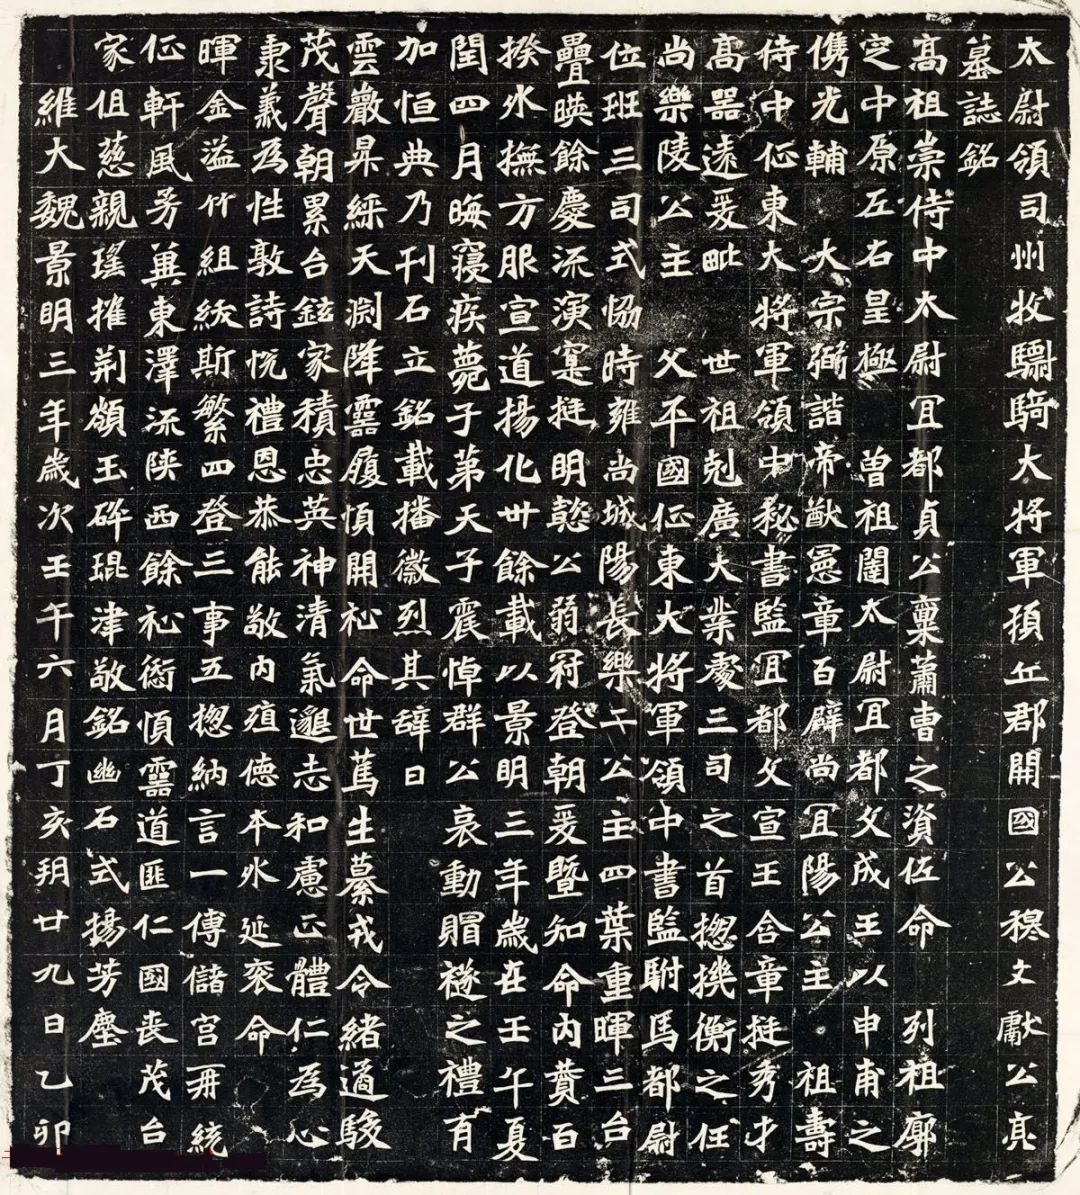 太尉領司州牧驃騎大將軍頓丘郡開國公穆文獻公亮
墓誌銘
高祖崇侍中太尉冝都貞公稟蕭曹之資佐命　列祖廓
㝎中原左右皇極　曾祖闥太尉冝都文成王以申甫之
儁光輔　大宗弼諧帝猷憲章百辟尚冝陽公主　祖壽
侍中征東大將軍領中秘書監冝都文宣王含章挺秀才
高器遠爰毗　世祖剋廣大業處三司之首揔機衡之任
尚樂陵公主　父平國征東大將軍領中書監駙馬都尉
位班三司式協時雍尚城陽長樂二公主四葉重暉三台
疊暎餘慶流演寔挺明懿公弱冠登朝爰曁知命內賛百
揆外撫方服宣道揚化卅餘載以景明三年歲在壬午夏
閏四月晦寢疾薨于第天子震悼群公哀動賵襚之禮有
加恒典乃刊石立銘載播徽烈其辭曰
雲巖昇綵天淵降靈履順開祉命世篤生纂戎令緒遹駿
茂聲朝累台鉉家積忠英神清氣邈志和慮正體仁為心
秉義為性敦詩悅禮恩恭能敬內殖德本外延袞命
暉金溢竹組綬斯繁四登三事五揔納言一傅儲宮再統
征軒風芳冀東澤流陝西餘祉銜順靈道匪仁國喪茂台
家俎慈親瑤摧荊頟玉碎琨津敬銘幽石式揚芳塵
維大魏景明三年歲次壬午六月丁亥朔廿九日乙卯